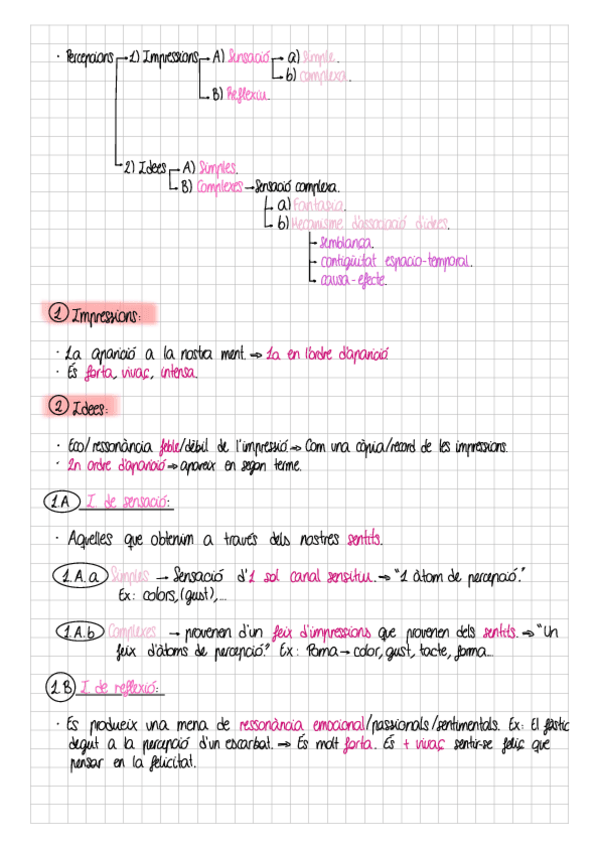 · Percepcions 1) Impressions A) Sensació a) Simple.
b) complexa.
B) Reflexiu.
2) Idees A) Simples.
B) Complexes → Sensació complexa.
a) Fantasia.
b) Mecanisme d'associació d'idees.
semblança.
contigüitat espacio-temporal.
causa-efecte.
1 Impressions:
· 1a aparició a la nostra ment. → 1a en l'ordre d'aparició
· És forta, vivaç, intensa.
2 Idees:
· Eco/ressonància feble/dèbil de l'impressió → Com una còpia/record de les impressions.
· 2n ordre d'aparició → apareix en segon terme.
1.A I. de sensació:
· Aquelles que obtenim a través dels nostres sentits.
1.A.a Simples → Sensació d'1 sol canal sensitiu. → "1 àtom de percepció."
Ex: colors, (gust),...
1.A.b Complexes → provenen d'un feix d'impressions que provenen dels sentits. → "Un
feix d'àtoms de percepció." Ex: Poma → color, gust, tacte, forma...
1.B I. de reflexió:
· Es produeix una mena de ressonància emocional/passionals/sentimentals. Ex: El fàstic
degut a la percepció d'un escarbat. → És molt forta. És + vivaç sentir-se feliç que
pensar en la felicitat.